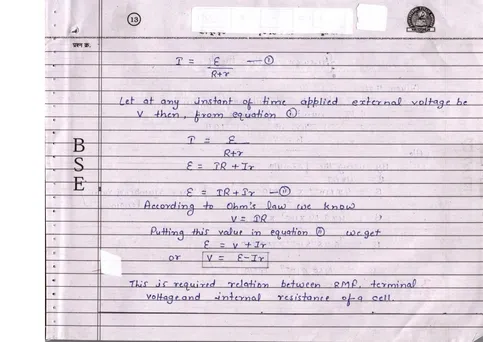 13
प्रश्न क्र.
I = ε/(R+r) — ①
Let at any instant of time applied external voltage be
V then, from equation ①
I = ε/(R+r)
ε = IR + Ir
ε = IR + Ir — ⑪
According to Ohm's law we know
V = IR
Putting this value in equation ⑪ we get
ε = V + Ir
or V = ε - Ir
This is required relation between EMF, terminal
voltage and internal resistance of a cell.
B
S
E